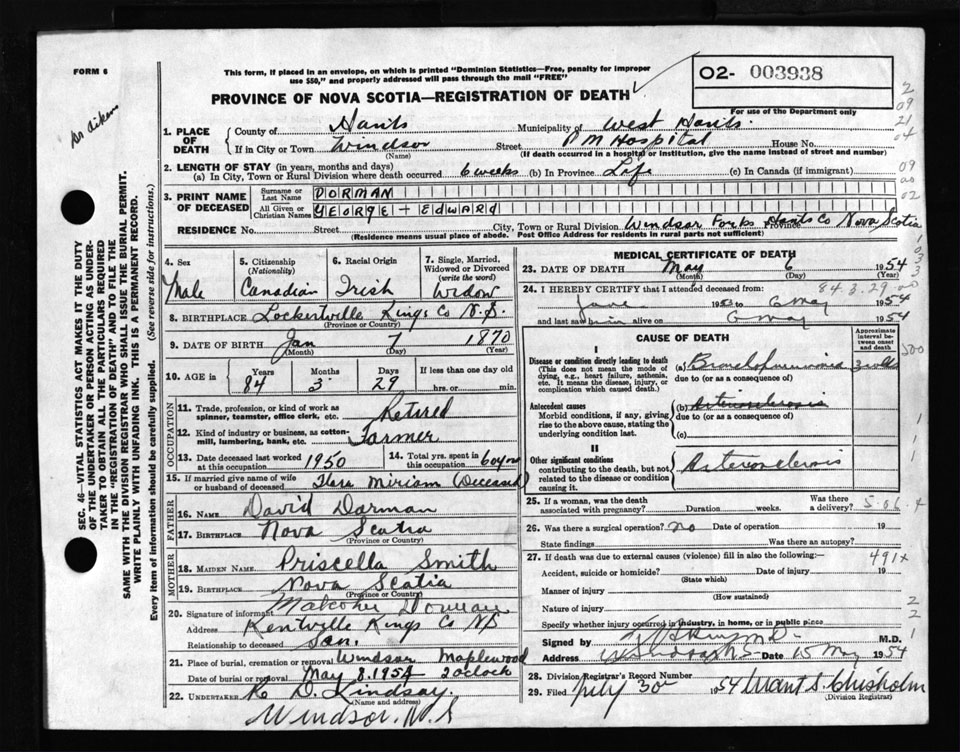 FORM 6
This form, if placed in an envelope, on which is printed "Dominion Statistics—Free, penalty for improper
use $50," and properly addressed will pass through the mail "FREE"
02- 003938
For use of the Department only
PROVINCE OF NOVA SCOTIA—REGISTRATION OF DEATH
Dr Aiken
1. PLACE OF DEATH County of Hants Municipality of West Hants.
If in City or Town Windsor (Name) Street P M Hospital House No.
(If death occurred in a hospital or institution, give the name instead of street and number)
2. LENGTH OF STAY (in years, months and days)
(a) In City, Town or Rural Division where death occurred 6 weeks (b) In Province Life (c) In Canada (if immigrant)
3. PRINT NAME OF DECEASED
Surname or Last Name DORMAN
All Given or Christian Names GEORGE + EDWARD
RESIDENCE No. Street City, Town or Rural Division Windsor Forks Hants Co Province Nova Scotia
(Residence means usual place of abode. Post Office Address for residents in rural parts not sufficient)
SEC. 46—VITAL STATISTICS ACT MAKES IT THE DUTY
OF THE UNDERTAKER OR PERSON ACTING AS UNDER-
TAKER TO OBTAIN ALL THE PARTICULARS REQUIRED
IN THE "REGISTRATION OF DEATH" AND TO FILE THE
SAME WITH THE DIVISION REGISTRAR WHO SHALL ISSUE THE BURIAL PERMIT.
WRITE PLAINLY WITH UNFADING INK. THIS IS A PERMANENT RECORD.
Every item of information should be carefully supplied. (See reverse side for instructions.)
4. Sex Male
5. Citizenship (Nationality) Canadian
6. Racial Origin Irish
7. Single, Married, Widowed or Divorced (write the word) Widow
8. BIRTHPLACE Lockertville Kings Co N.S.
(Province or Country)
9. DATE OF BIRTH Jan 7 1870
(Month) (Day) (Year)
10. AGE in Years 84 Months 3 Days 29 If less than one day old hrs. or min.
OCCUPATION
11. Trade, profession, or kind of work as spinner, teamster, office clerk, etc. Retired
12. Kind of industry or business, as cotton-mill, lumbering, bank, etc. Farmer
13. Date deceased last worked at this occupation 1950
14. Total yrs. spent in this occupation 60 yrs
15. If married give name of wife or husband of deceased Miriam (Deceased)
FATHER
16. Name David Dorman
17. Birthplace Nova Scotia
(Province or Country)
MOTHER
18. Maiden Name Priscella Smith
19. Birthplace Nova Scotia
(Province or Country)
20. Signature of informant Dorman
Address Kentville Kings Co NS
Relationship to deceased Son.
21. Place of burial, cremation or removal Windsor Maplewood
Date of burial or removal May 8. 1954 2 oclock
22. Undertaker K D. Lindsay.
(Name and address)
Windsor, N.S
MEDICAL CERTIFICATE OF DEATH
23. DATE OF DEATH May 6 1954
(Month) (Day) (Year)
84.3.29
24. I HEREBY CERTIFY that I attended deceased from:
June 1953 to 6 May 1954
and last saw him alive on 6 May 1954
CAUSE OF DEATH
Approximate interval between onset and death
I
Disease or condition directly leading to death
(This does not mean the mode of dying, e.g., heart failure, asthenia, etc. It means the disease, injury, or complication which caused death.)
(a) Bronchopneumonia 3 wks
due to (or as a consequence of)
Antecedent causes
Morbid conditions, if any, giving rise to the above cause, stating the underlying condition last.
(b) Arteriosclerosis
due to (or as a consequence of)
(c)
II
Other significant conditions
contributing to the death, but not related to the disease or condition causing it.
Arteriosclerosis
25. If a woman, was the death associated with pregnancy? Duration weeks. Was there a delivery?
26. Was there a surgical operation? no Date of operation 19
State findings Was there an autopsy?
27. If death was due to external causes (violence) fill in also the following:—
491x
Accident, suicide or homicide? Date of injury 19
(State which)
Manner of injury
(How sustained)
Nature of injury
Specify whether injury occurred in industry, in home, or in public place
Signed by M.D.
Address Date 15 May 1954
28. Division Registrar's Record Number
29. Filed July 30 1954 Grant S. Chisholm
(Division Registrar)